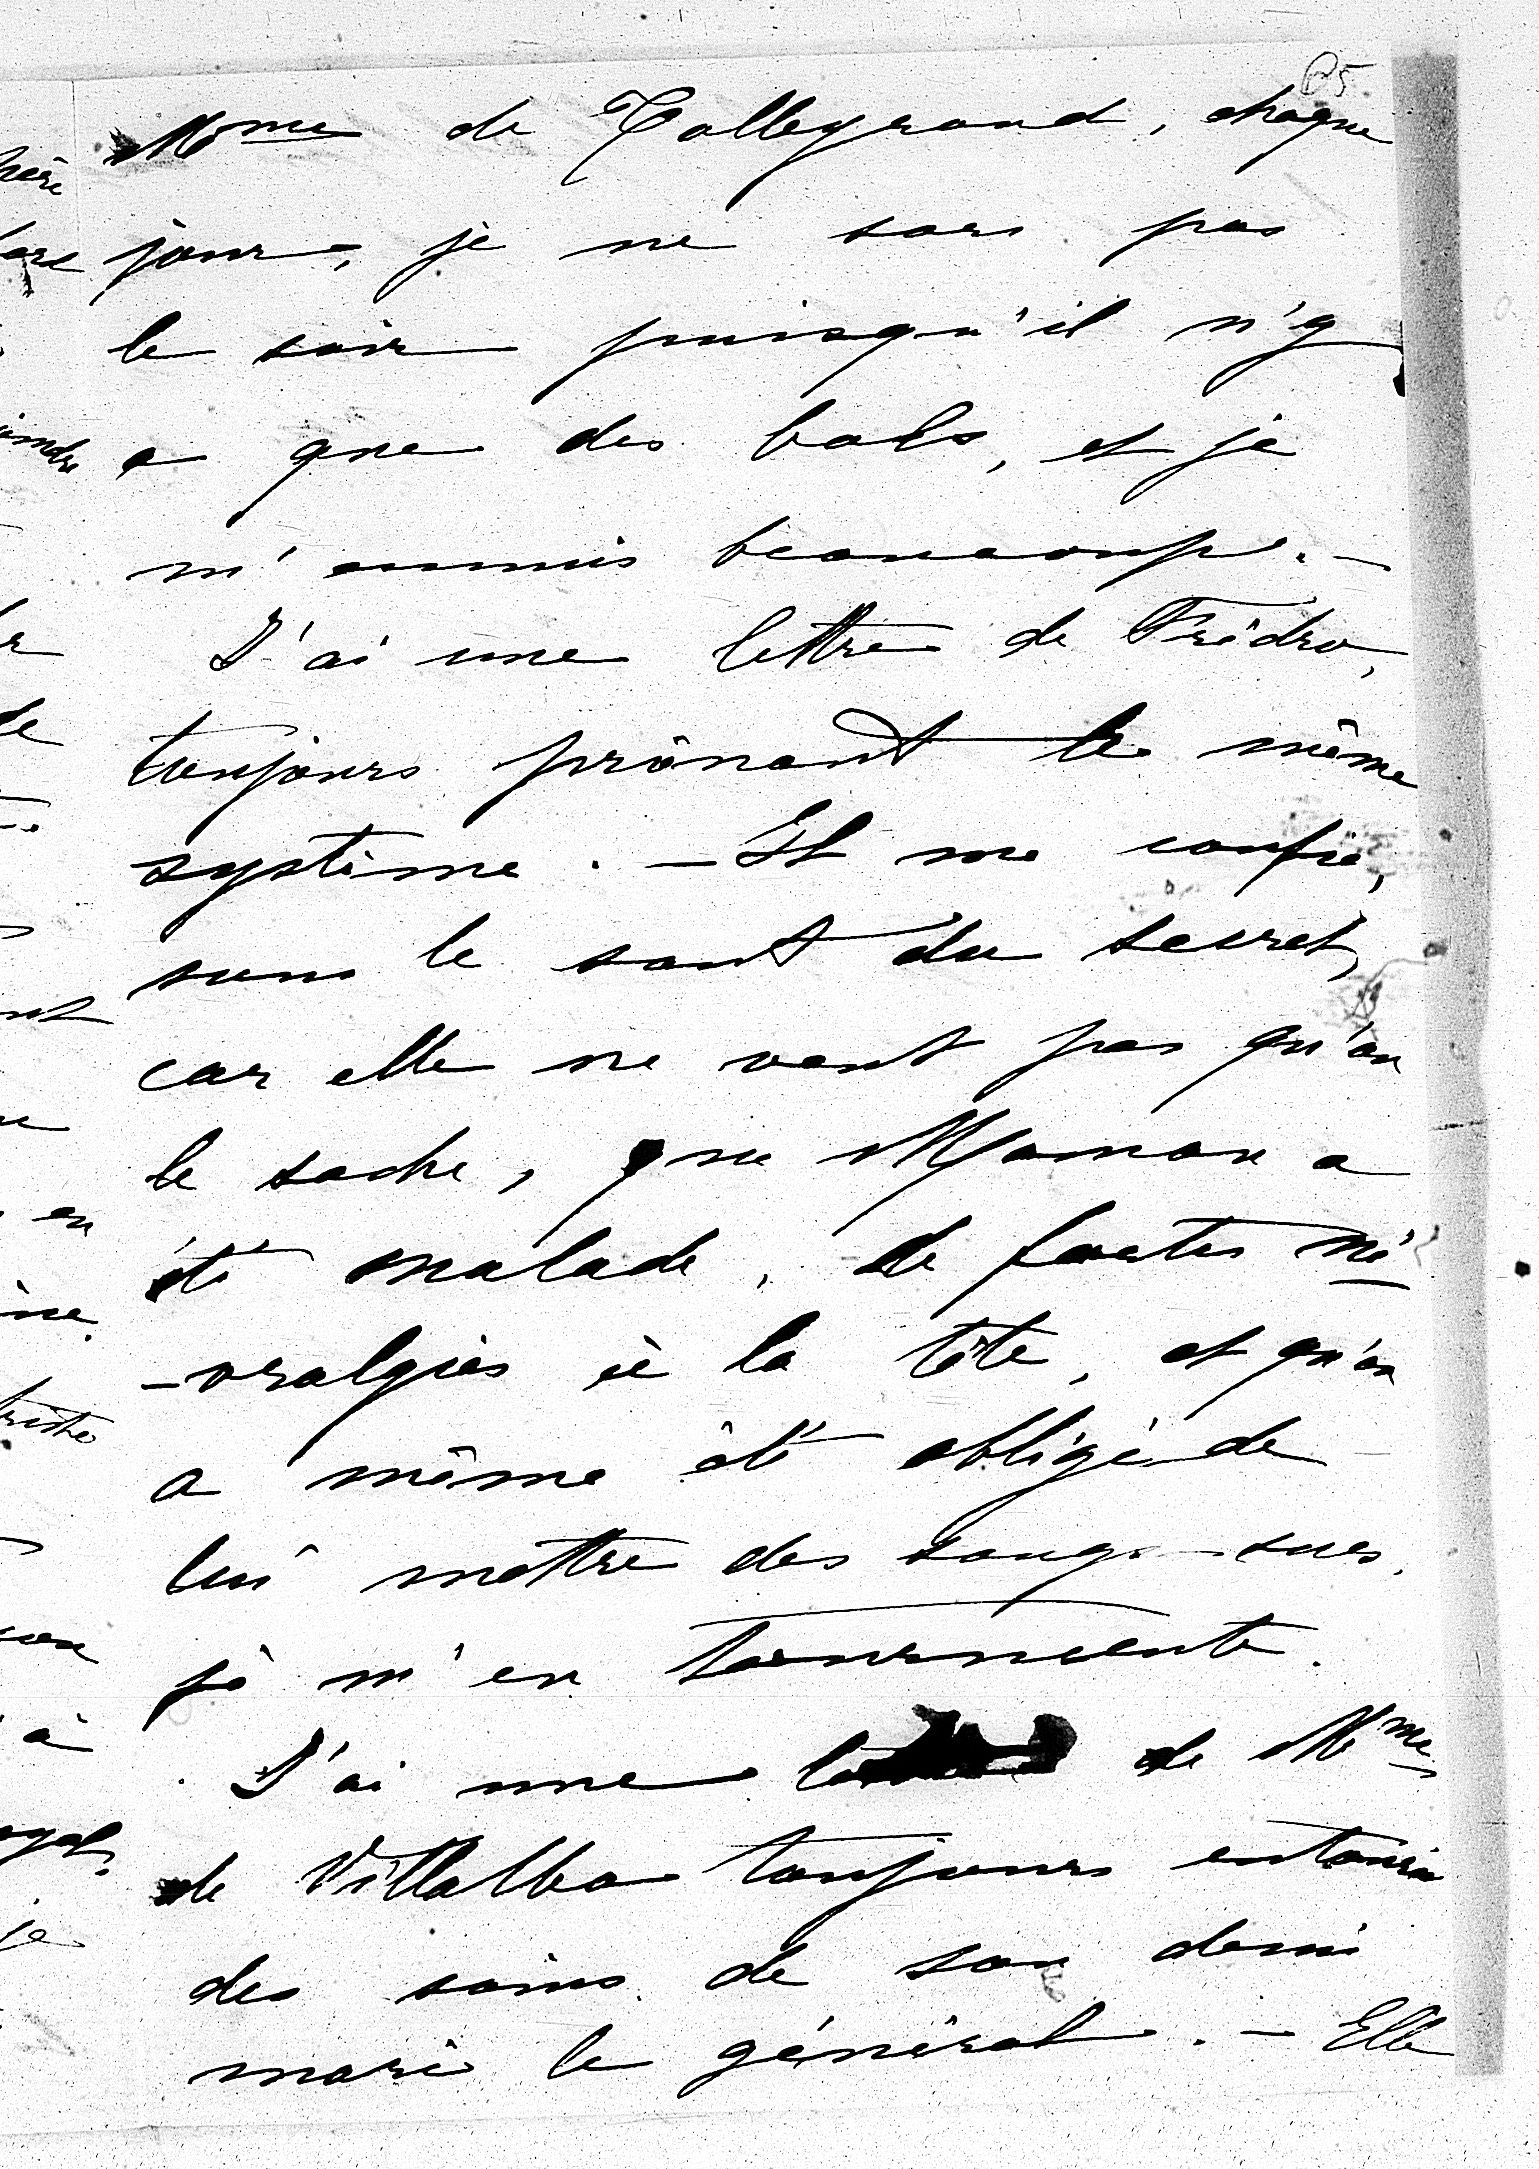 P5
Mme de Talleyrand, chaque
jour, je ne sors pas
le soir puisqu'il n'y
a que des bals, et je
m'ennuis beaucoup. -
J'ai une lettre de Frédro,
toujours prônant le même
système. - Il me confie,
sous le saut du secret,
car elle ne veut pas qu'on
le sache, que Maman a
été malade, de fortes né
-vralgies à la tête, et qu'on
a même été obligé de
lui mettre des sang-sues,
je m'en tourmente.
J'ai une de Mme
de Villalba toujours entourée
des soins de son demi
mari le général. - Elle